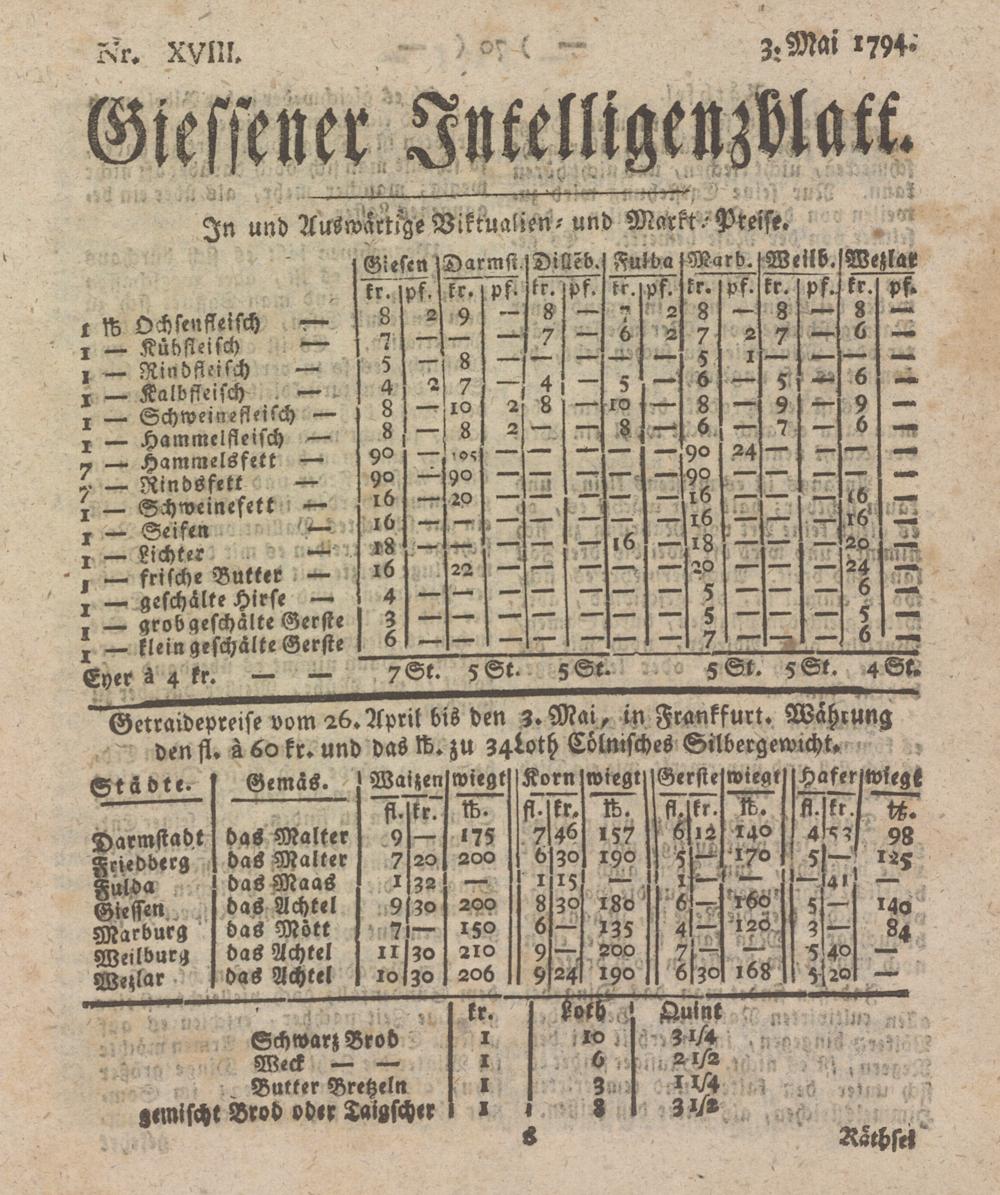 Nr. XVIII. 3. Mai 1794.
Giessener Intelligenzblatt.
In und Auswärtige Viktualien- und Markt-Preise.
Giesen Darmst. Dilleb. Fulda Marb. Weilb. Wezlar
kr. pf. kr. pf. kr. pf. kr. pf. kr. pf. kr. pf. kr. pf.
1 ℔ Ochsenfleisch — 8 2 9 — 8 — 7 2 8 — 8 — 8 —
1 — Kühfleisch — 7 — — — 7 — 6 2 7 2 7 — 6 —
1 — Rindfleisch — 5 — 8 — — — — — 5 1 — — — —
1 — Kalbfleisch — 4 2 7 — 4 — 5 — 6 — 5 — 6 —
1 — Schweinefleisch — 8 — 10 2 8 — 10 — 8 — 9 — 9 —
1 — Hammelfleisch — 8 — 8 2 — — 8 — 6 — 7 — 6 —
7 — Hammelsfett — 90 — 105 — — — — — 90 24 — — — —
7 — Rindsfett — 90 — 90 — — — — — 90 — — — — —
1 — Schweinefett — 16 — 20 — — — — — 16 — — — 16 —
1 — Seifen — 16 — — — — — — — 16 — — — 16 —
1 — Lichter — 18 — — — — — 16 — 18 — — — 20 —
1 — frische Butter — 16 — 22 — — — — — 20 — — — 24 —
1 — geschälte Hirse — 4 — — — — — — — 5 — — — 6 —
1 — grob geschälte Gerste 3 — — — — — — — 5 — — — 5 —
1 — klein geschälte Gerste 6 — — — — — — — 7 — — — 6 —
Eyer à 4 kr. — — 7 St. 5 St. 5 St. 5 St. 5 St. 4 St.
Getraidepreise vom 26. April bis den 3. Mai, in Frankfurt. Währung
den fl. à 60 kr. und das ℔. zu 34 Loth Cölnisches Silbergewicht.
Städte. Gemäs. Waizen wiegt Korn wiegt Gerste wiegt Hafer wiegt
fl. kr. ℔. fl. kr. ℔. fl. kr. ℔. fl. kr. ℔.
Darmstadt das Malter 9 — 175 7 46 157 6 12 140 4 53 98
Friedberg das Malter 7 20 200 6 30 190 5 — 170 5 — 125
Fulda das Maas 1 32 — 1 15 — 1 — — — 41 —
Giessen das Achtel 9 30 200 8 30 180 6 — 160 5 — 140
Marburg das Mött 7 — 150 6 — 135 4 — 120 3 — 84
Weilburg das Achtel 11 30 210 9 — 200 7 — — 5 40 —
Wezlar das Achtel 10 30 206 9 24 190 6 30 168 5 20 —
kr. Loth Quint
Schwarz Brod 1 10 3 1/4
Weck — — 1 6 2 1/2
Butter Bretzeln 1 3 1 1/4
gemischt Brod oder Taigscher 1 8 3 1/2
Räthsel